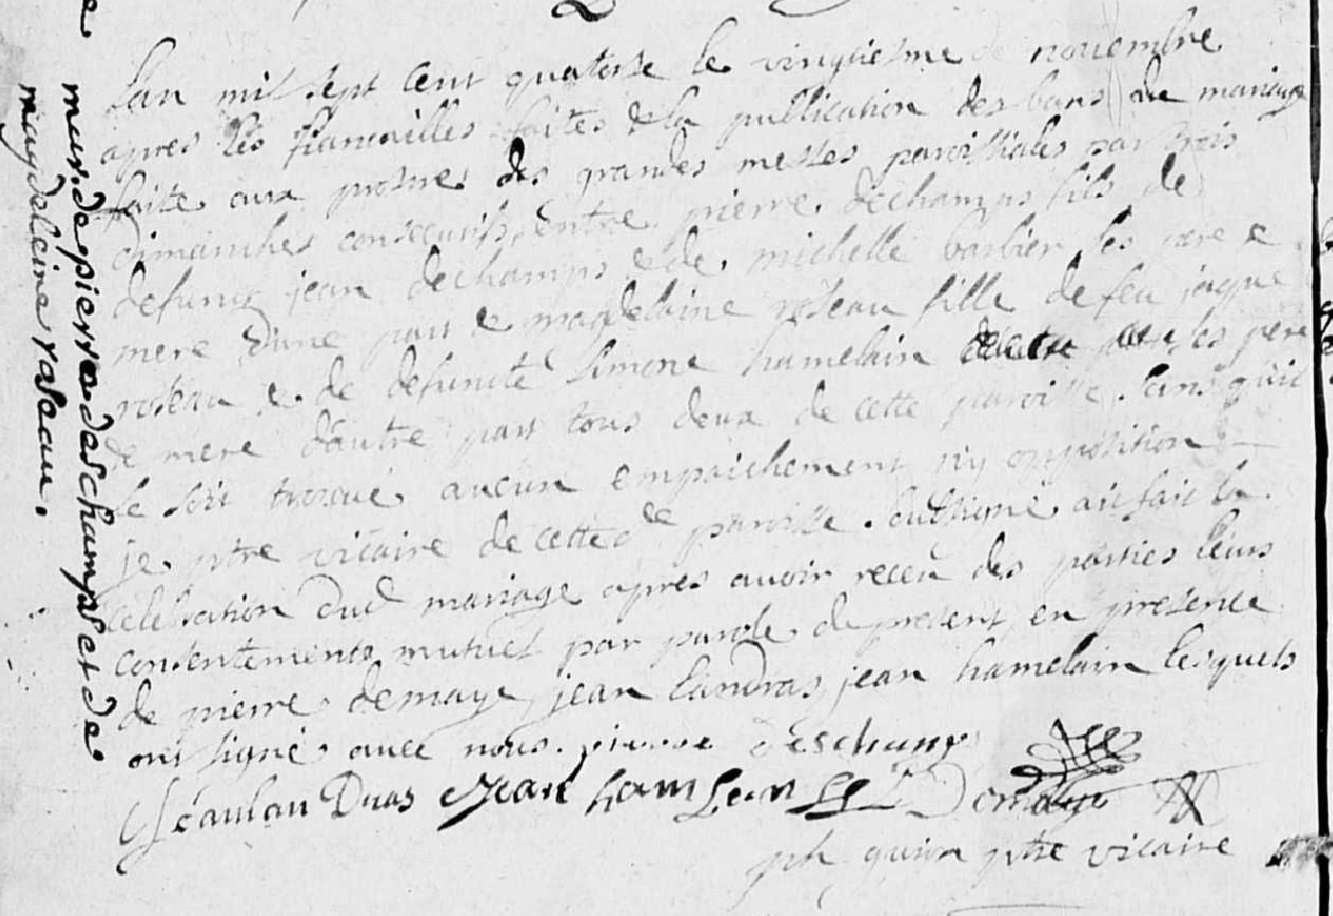 mar. de pierre deschamps et de
magdeleine raseau.
Lan mil sept cent quatorse le vinguiesme de novembre
apres les fiancailles faites & la publication des bans de mariage
faite aux prosnes des grandes messes paroissiales par trois
dimanches consecutifs, entre pierre dechamps fils de
defunct jean dechamps & de michelle barbier ses pere &
mere d'une part & magdelaine roseau fille de feu jaque
roseau & de defuncte simone hamelain ses pere
& mere d'autre part tous deux de cette paroisse. sans qu'il
se soit trouvé aucun empaichement ny opposition
je ptre vicaire de cetted de paroisse. soubsigné ait fait la
celebration dud mariage apres avoir receu des parties leurs
consentements mutuel par parole de present en presence
de pierre demaye, jean landras, jean hamelain lesquels
ont signé avec nous. pierre deschamps
Jean hamlein Demaye
ph guion ptre vicaire